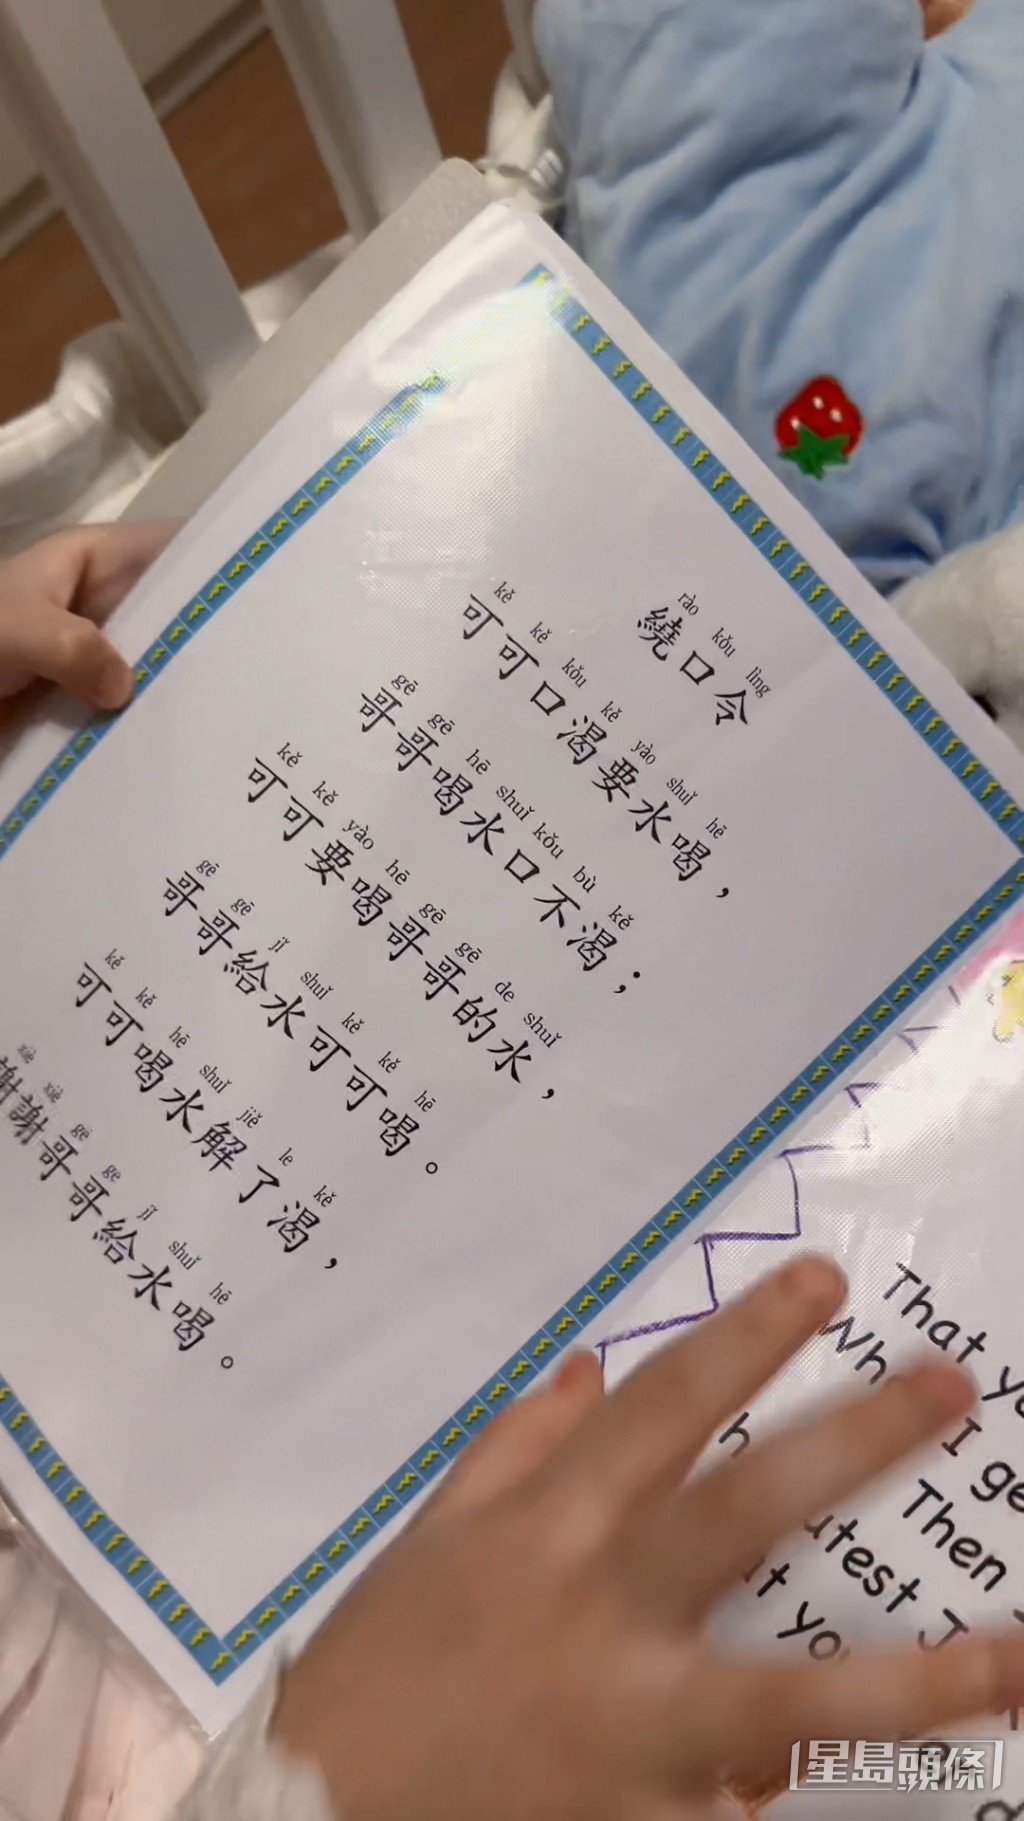 rào kǒu lìng
繞口令
kě kě kǒu kě yào shuǐ hē
可可口渴要水喝，
gē gē hē shuǐ kǒu bù kě
哥哥喝水口不渴；
kě kě yào hē gē gē de shuǐ
可可要喝哥哥的水，
gē gē jǐ shuǐ kě kě hē
哥哥給水可可喝。
kě kě hē shuǐ jiě le kě
可可喝水解了渴，
xiè xiè gē ge jǐ shuǐ hē
謝謝哥哥給水喝。
That
I
Then
星島頭條